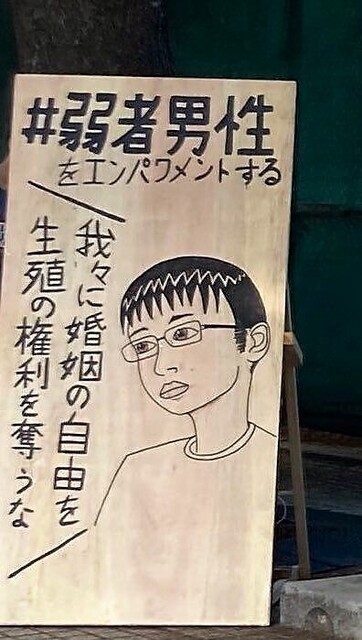 #弱者男性
をエンパワメントする
我々に婚姻の自由を
生殖の権利を奪うな